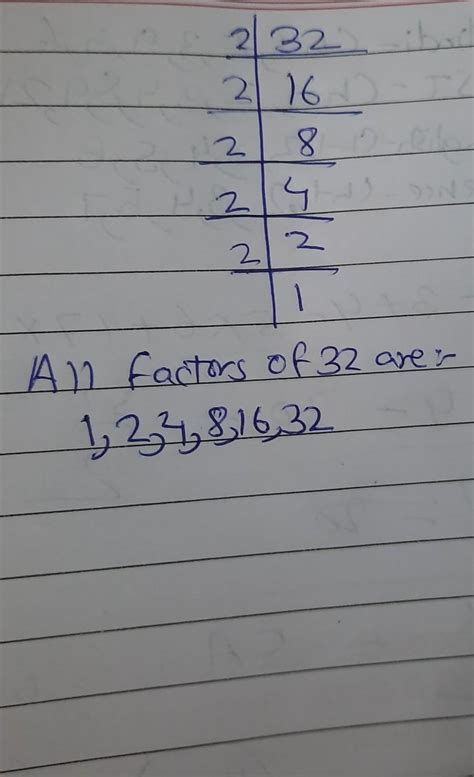 2 32
2 16
2 8
2 4
2 2
1
All factors of 32 are:-
1, 2, 4, 8, 16, 32